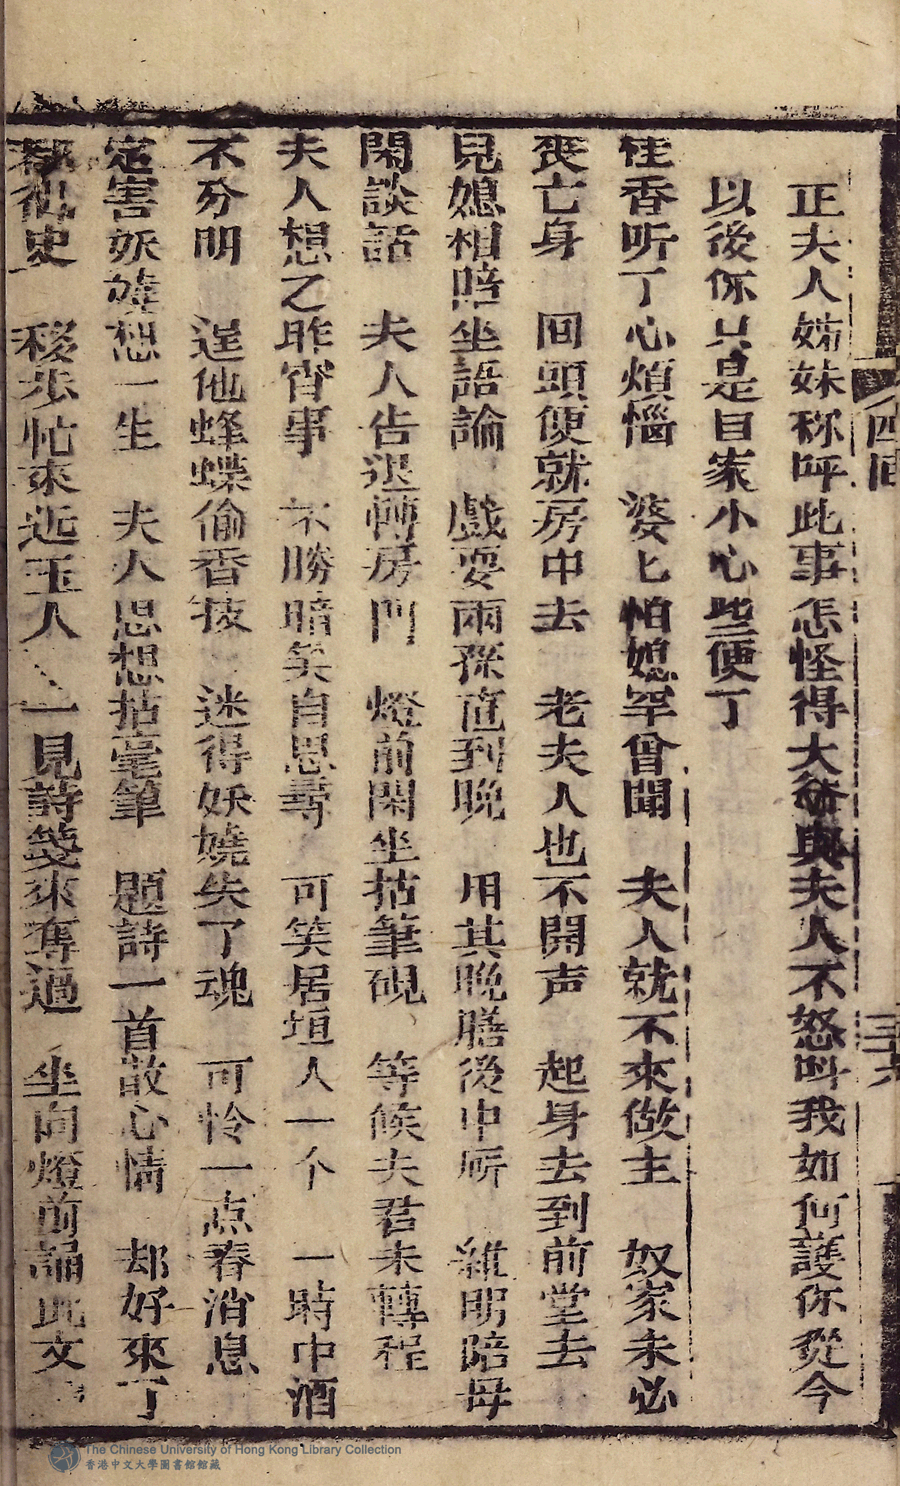 四回
三六
正夫人姊妹称呼此事怎怪得大爺與夫人不怒呌我如何護你從今
以後你只是自家小心些便了
桂香听了心煩惱 婆匕怕媳罕曾聞 夫人就不來做主 奴家未必
丧亡身 回頭便就房中去 老夫人也不開声 起身去到前堂去
見媳相陪坐語論 戲耍兩孫直到晚 用其晚膳後中所 維明陪母
閑談話 夫人告退轉房門 燈前閑坐拈筆硯 等候夫君未轉程
夫人想之昨宵事 不勝暗笑自思尋 可笑居垣人一个 一時中酒
不分明 逞他蜂蝶偷香技 迷得妖嬈失了魂 可怜一点春消息
定害妖嬈想一生 夫人思想拈毫筆 題詩一首散心情 却好來了
史 移步忙來近玉人 一見詩箋來奪過 坐向燈前誦此文
The Chinese University of Hong Kong Library Collection
香港中文大學圖書館館藏